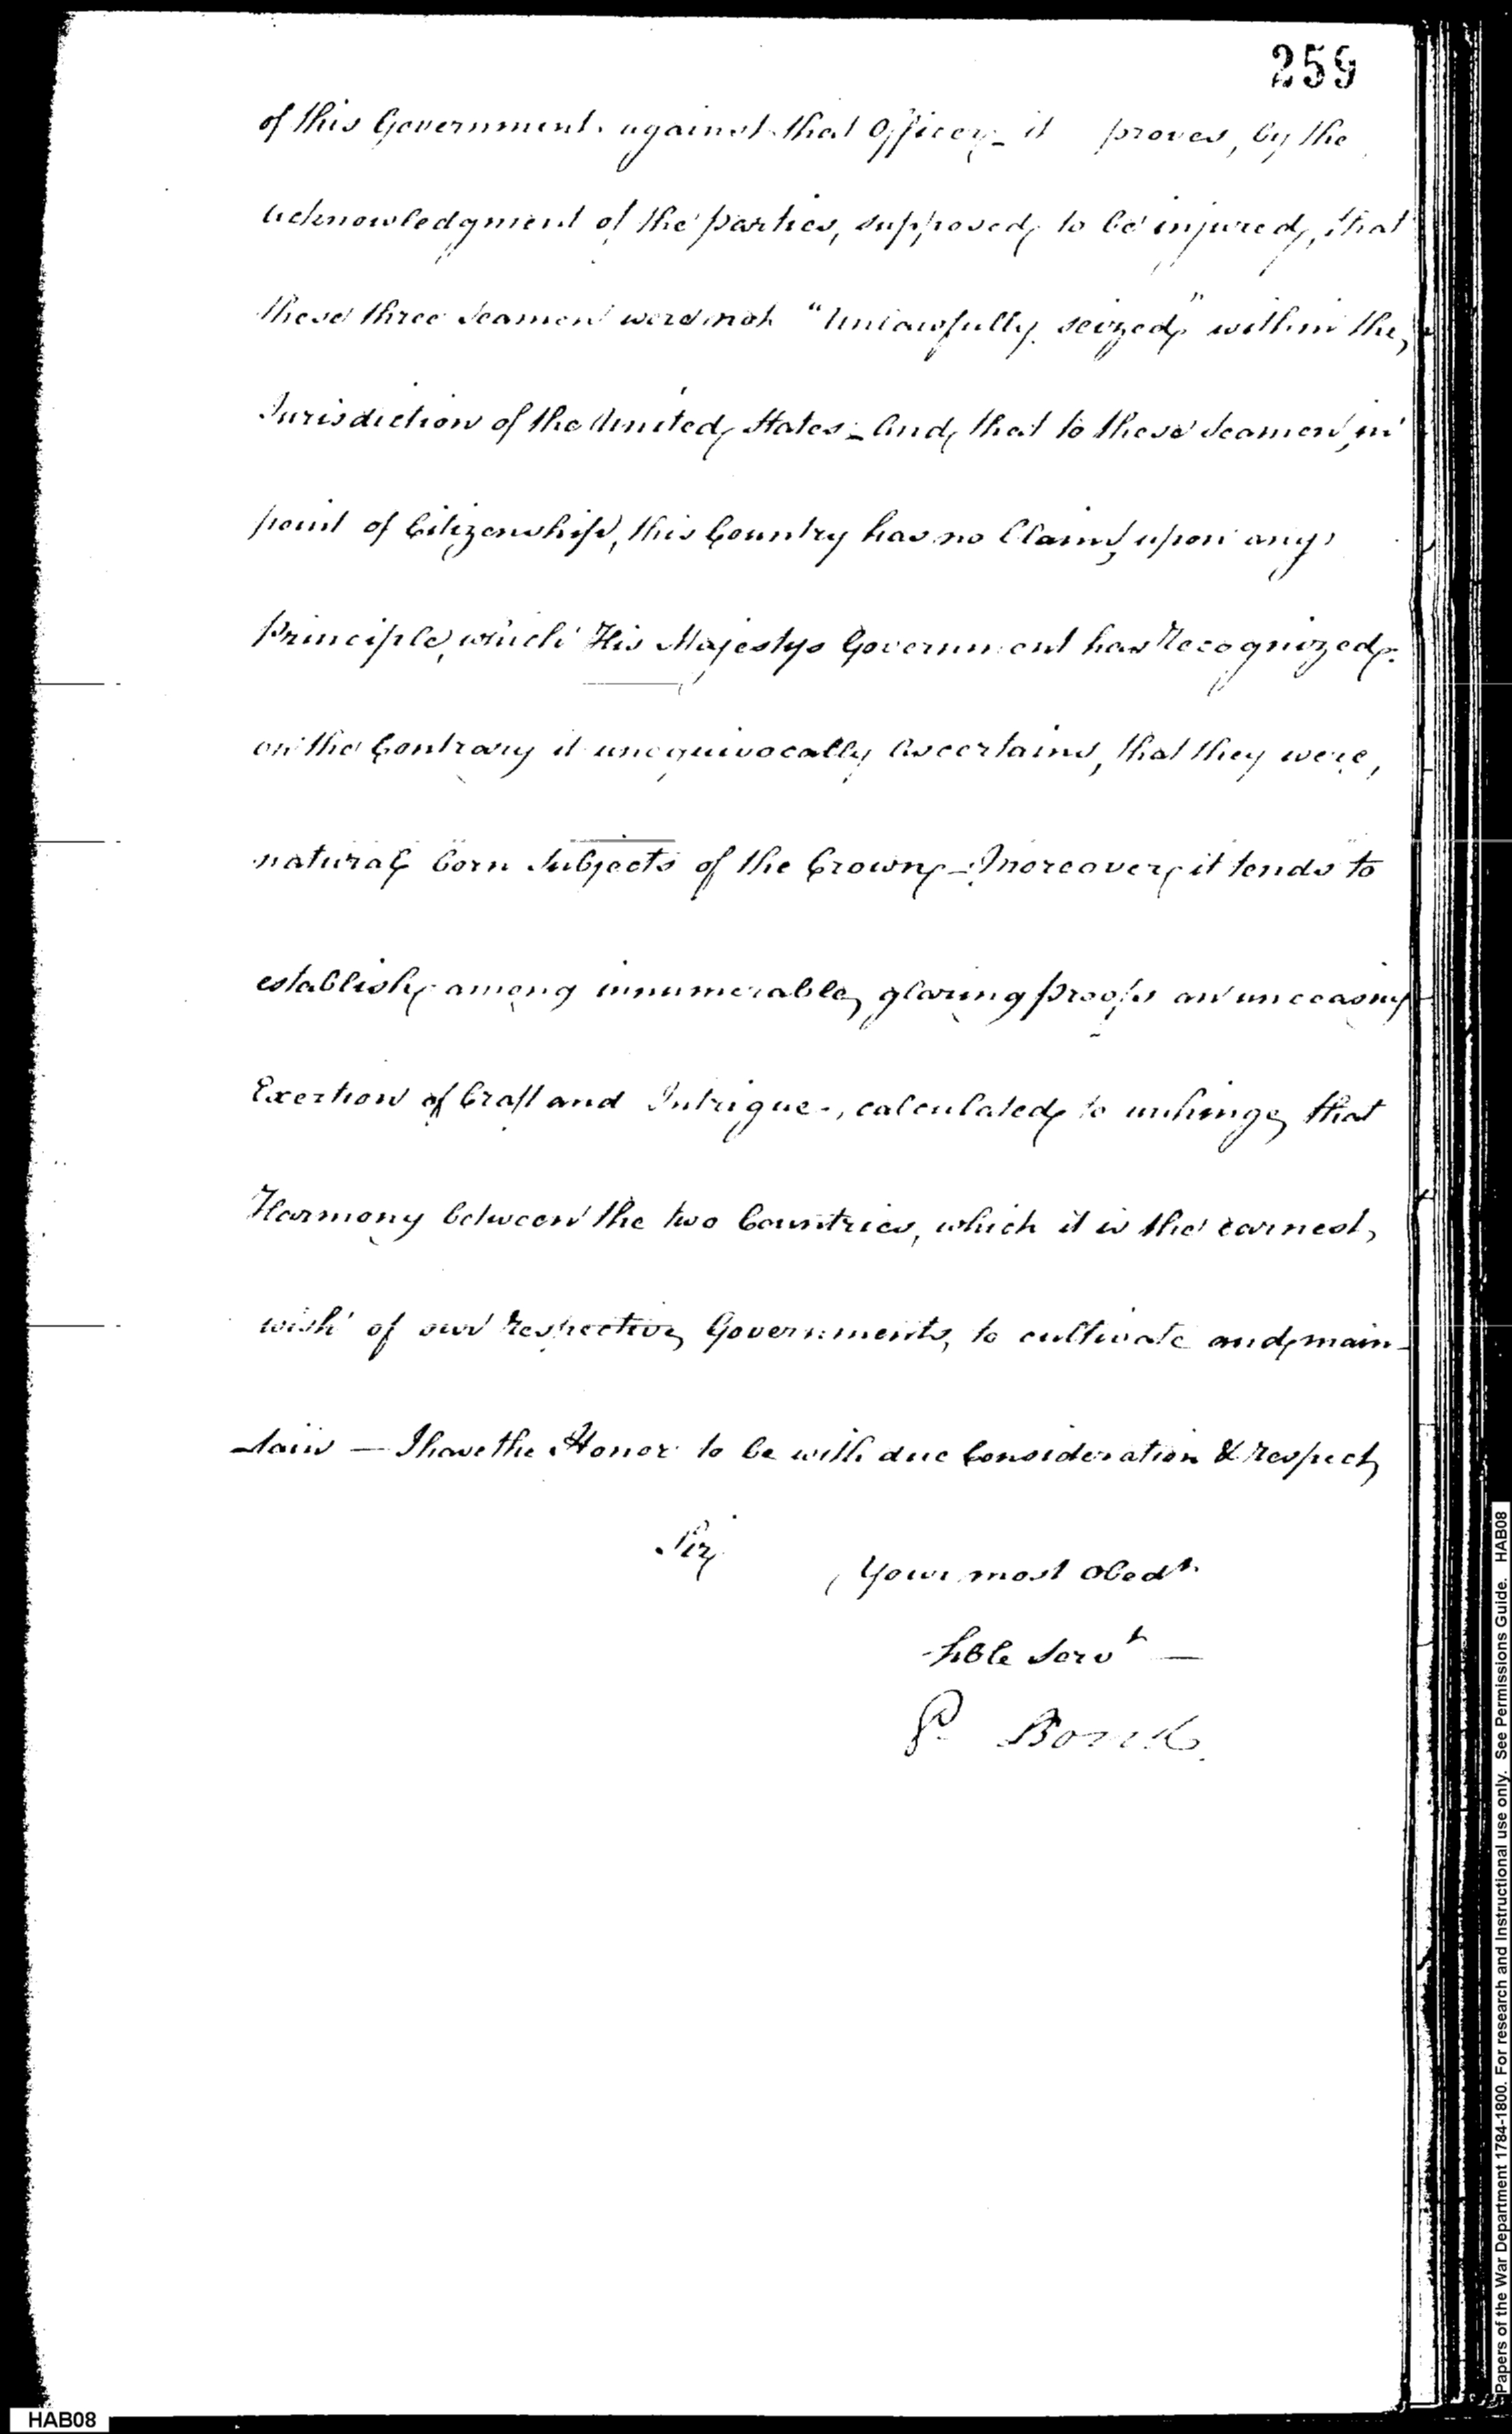 259
of this Government against that Officer - it proves, by the
acknowledgment of the parties, supposed to be injured, that
these three Seamen were not "Unlawfully seized" within the
Jurisdiction of the United States - And that to these Seamen, in
point of Citizenship, this Country has no Claim, upon any
Principle, which His Majestys Government has Recognized -
on the Contrary it unequivocally Ascertains, that they were,
natural born Subjects of the Crown - Moreover, it tends to
establish among innumerable, glaring proofs an unceasing
Exertion of Craft and Intrigue -, calculated to unhinge that
Harmony between the two Countries, which it is the earnest,
wish of our Respective Governments, to cultivate and main-
-tain — I have the Honor to be with due Consideration & Respect
Sir
Your most obedt
hble Servt —
P. Bond.
HAB08
Papers of the War Department 1784-1800. For research and Instructional use only. See Permissions Guide. HAB08